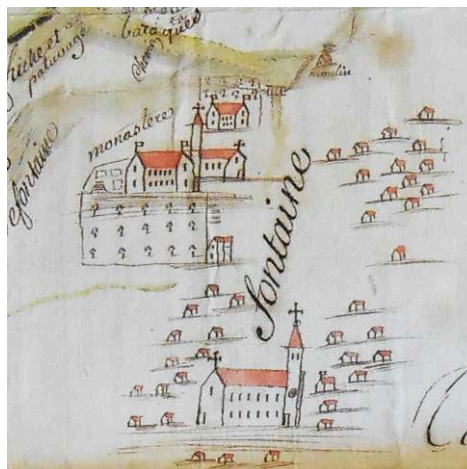 friche et
paturage
baraques
chemin
moulin
monastere
fontaine
fontaine